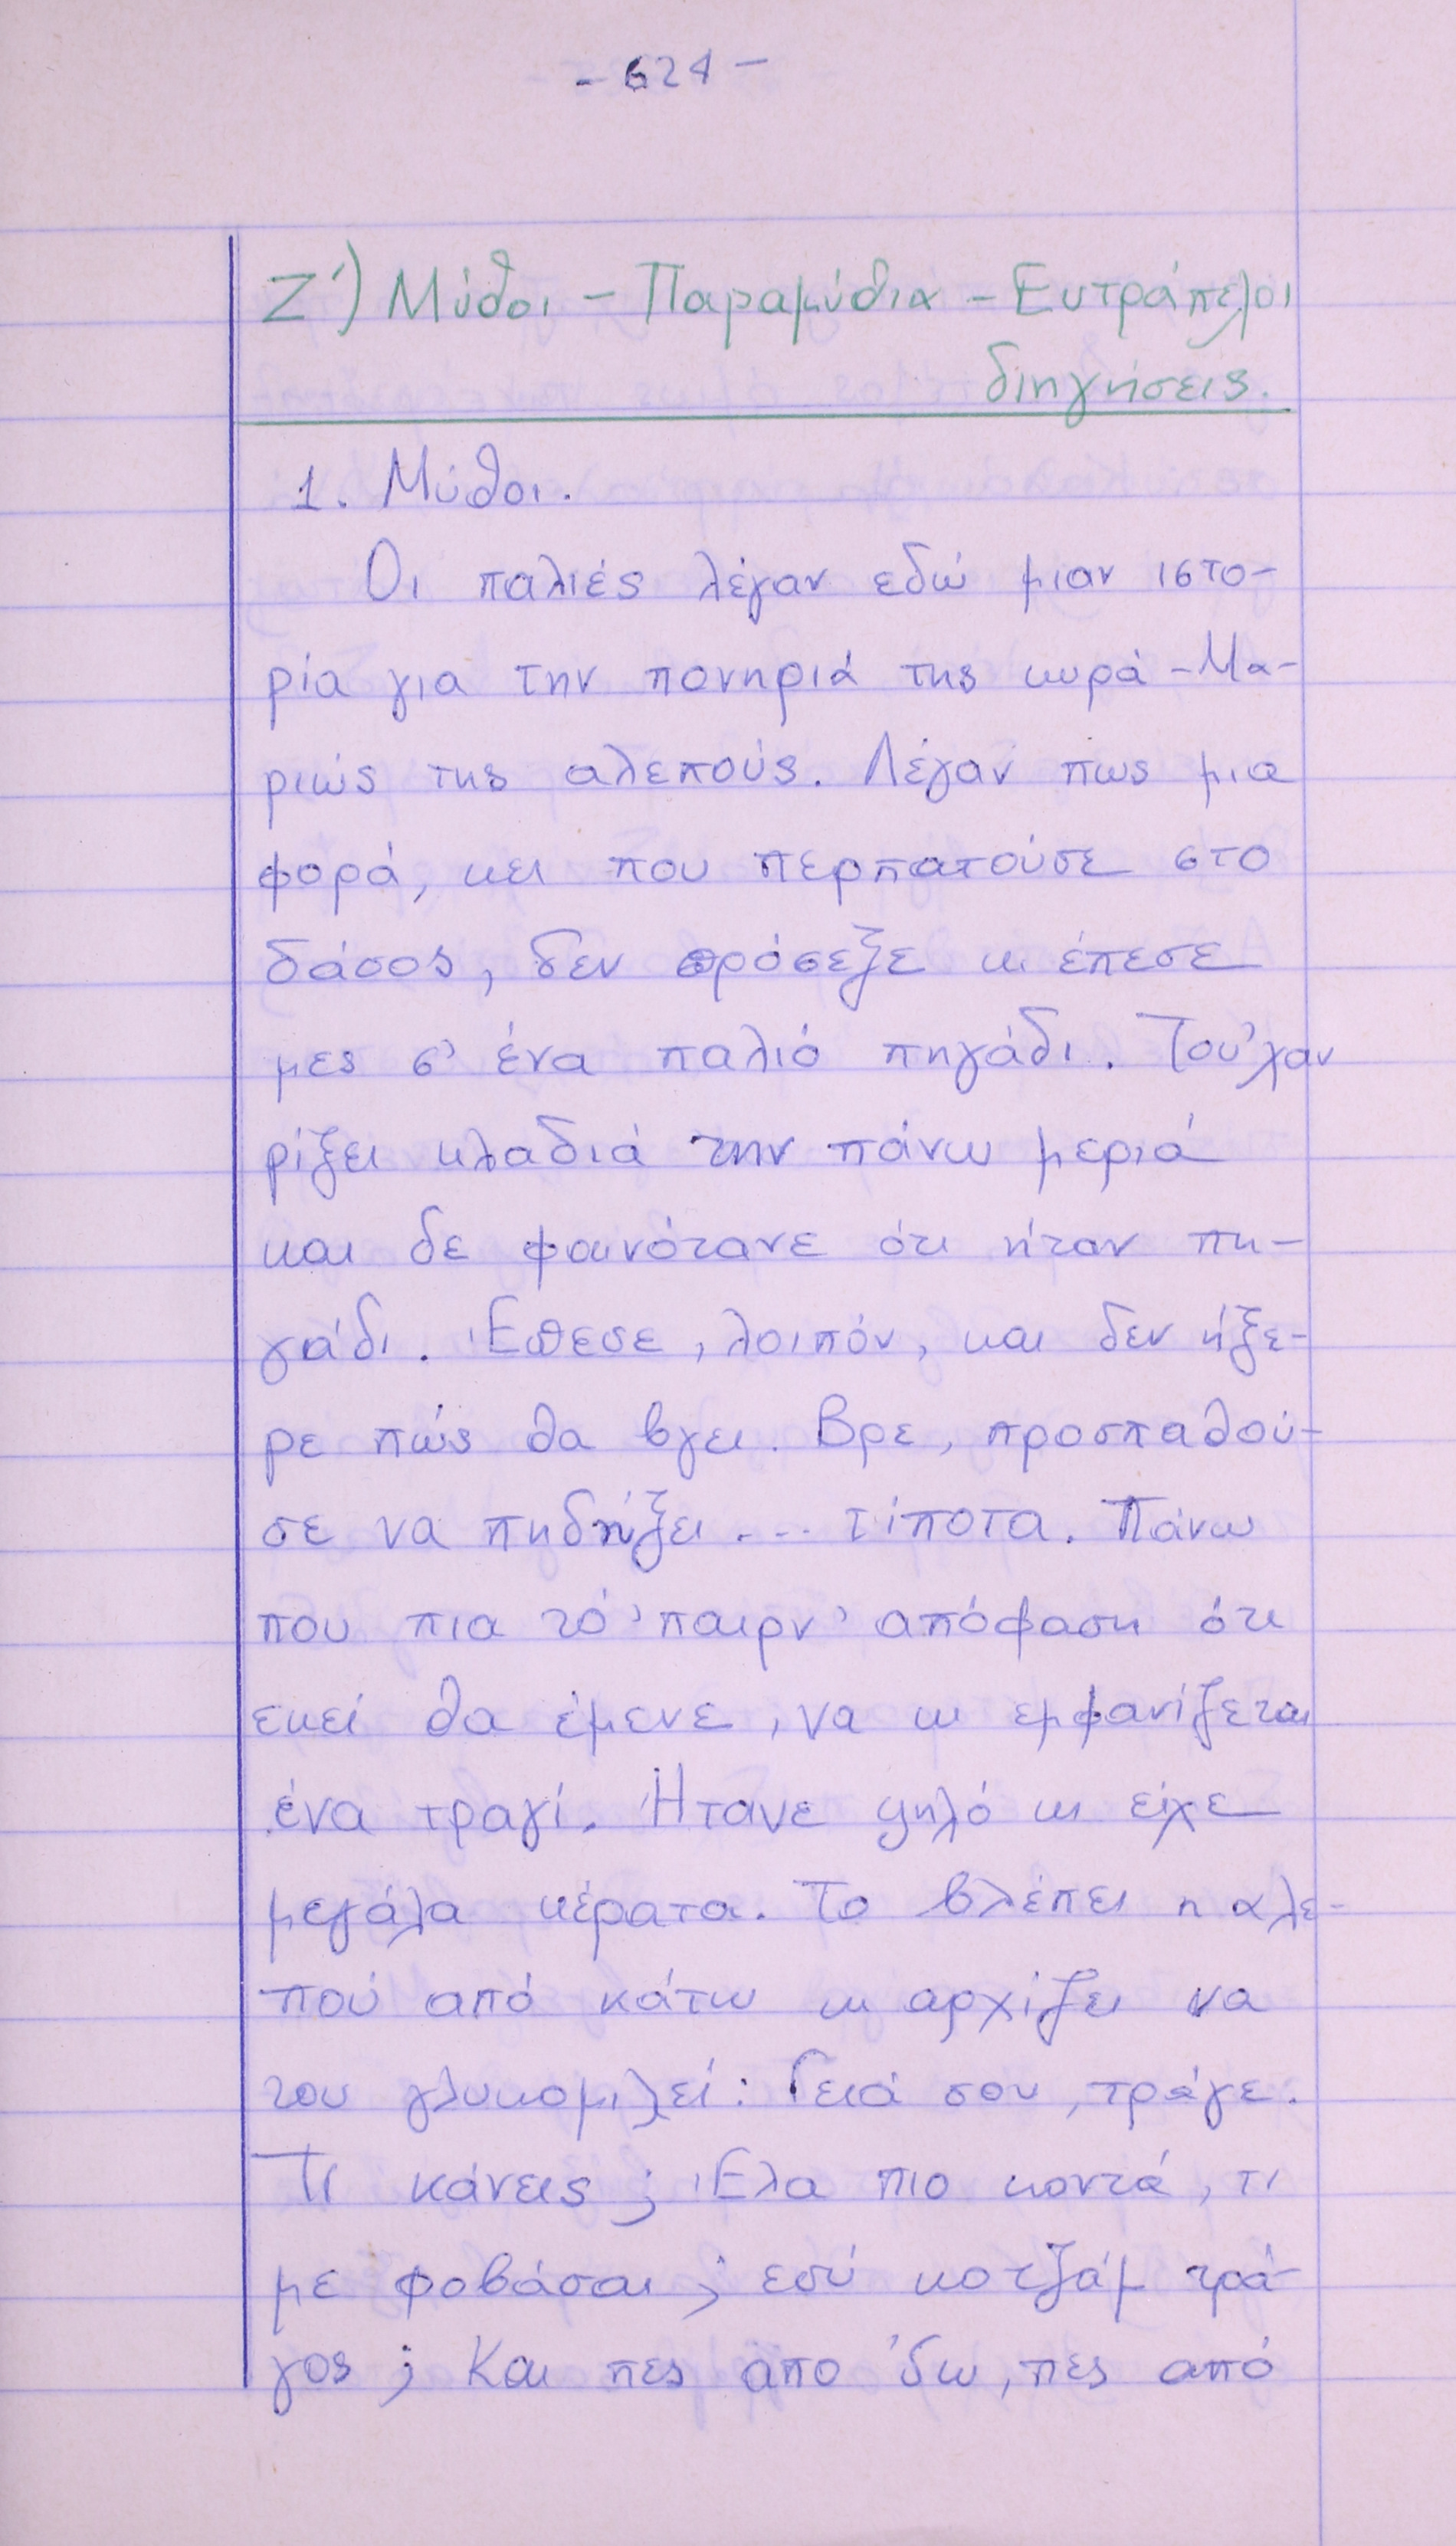 - 624 -
Ζ') Μύθοι - Παραμύθια - Ευτράπελοι
διηγήσεις.
1. Μύθοι.
Οι παλιές λέγαν εδώ μιαν ιστο-
ρία για την πονηριά της κυρά - Μα-
ριώς της αλεπούς. Λέγαν πως μια
φορά, κει που περπατούσε στο
δάσος, δεν πρόσεξε κι έπεσε
μες σ' ένα παλιό πηγάδι. Του'χαν
ρίξει κλαδιά την πάνω μεριά
και δε φαινότανε ότι ήταν πη-
γάδι. Έπεσε, λοιπόν, και δεν ήξε-
ρε πώς θα βγει. Βρε, προσπαθού-
σε να πηδήξει ... τίποτα. Πάνω
που πια τό 'παιρν' απόφαση ότι
εκεί θα έμενε, να κι εμφανίζεται
ένα τραγί. Ήτανε ψηλό κι είχε
μεγάλα κέρατα. Το βλέπει η αλε-
πού από κάτω κι αρχίζει να
του γλυκομιλεί: Γειά σου, τράγε.
Τι κάνεις; Έλα πιο κοντά, τι
με φοβάσαι; εσύ κοτζάμ τρά-
γος; Και πες απο 'δω, πες από